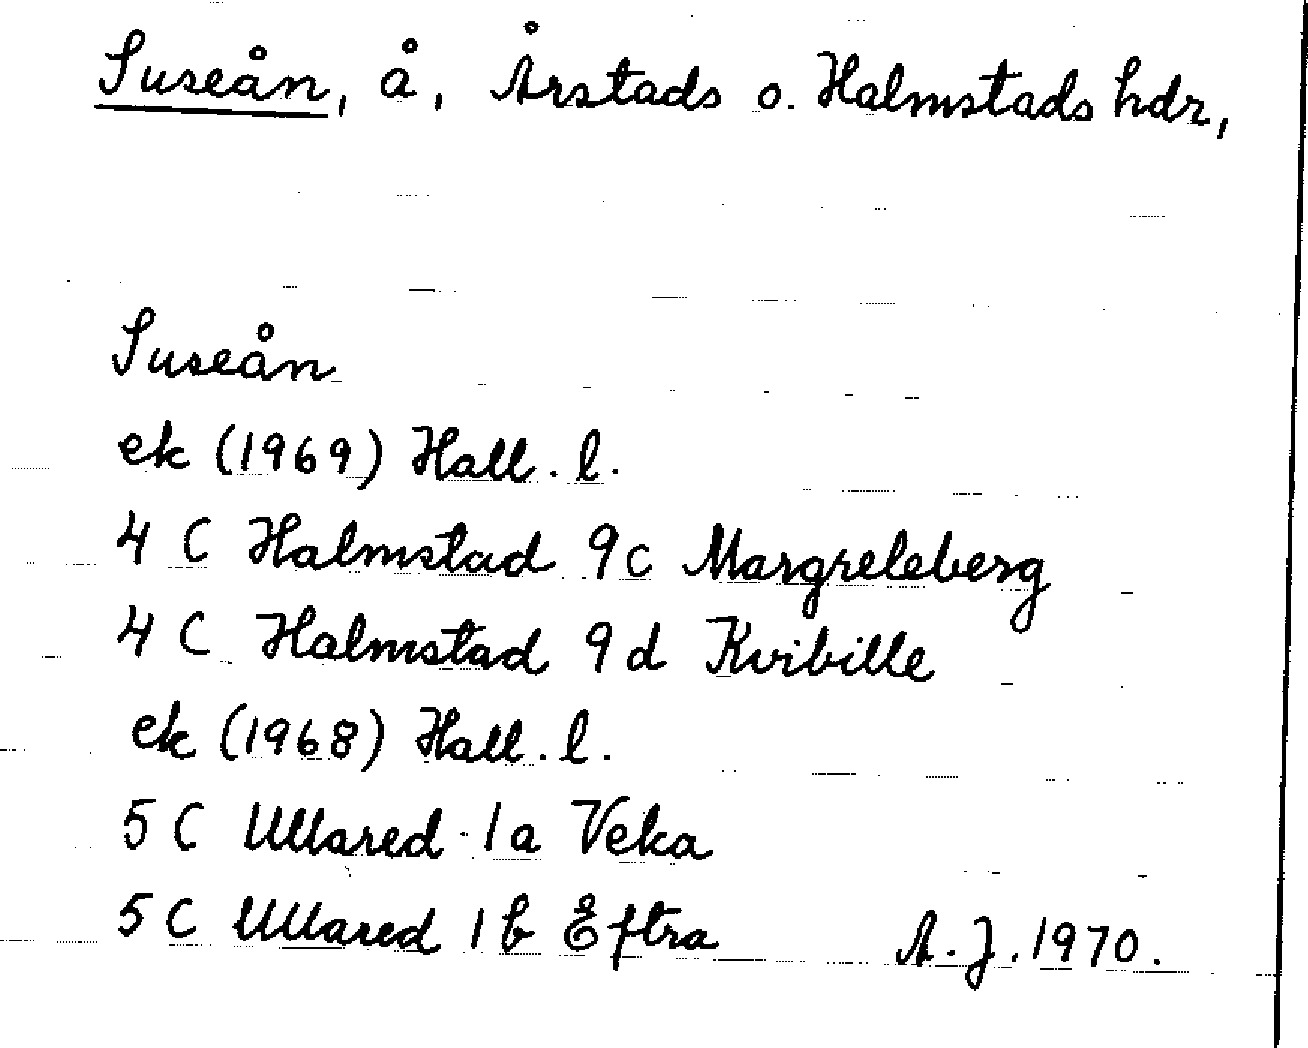 Suseån, å, Årstads o. Halmstads hdr,
Suseån
ek (1969) Hall. l.
4 C Halmstad 9c Margreteberg
4 C Halmstad 9d Kvibille
ek (1968) Hall. l.
5 C Ullared 1a Veka
5 C Ullared 1b Eftra A.J. 1970.